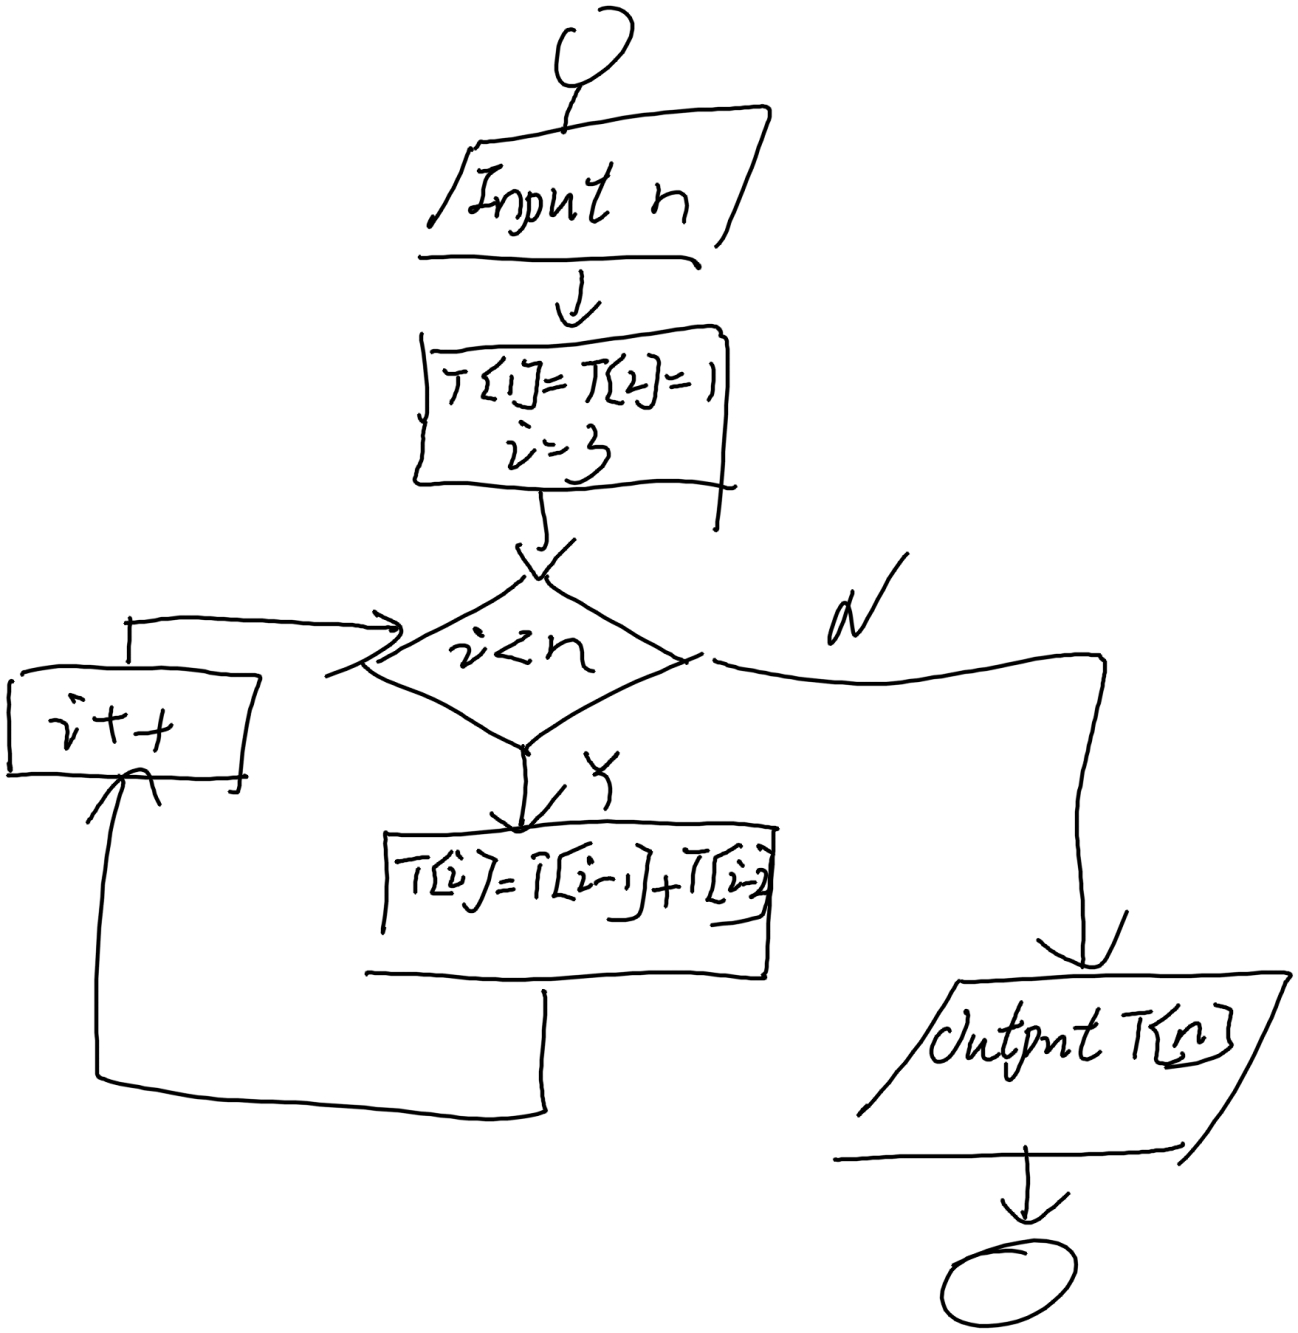 Input n
T[1]=T[2]=1
i=3
i<n
N
i++
Y
T[i]=T[i-1]+T[i-2]
Output T[n]